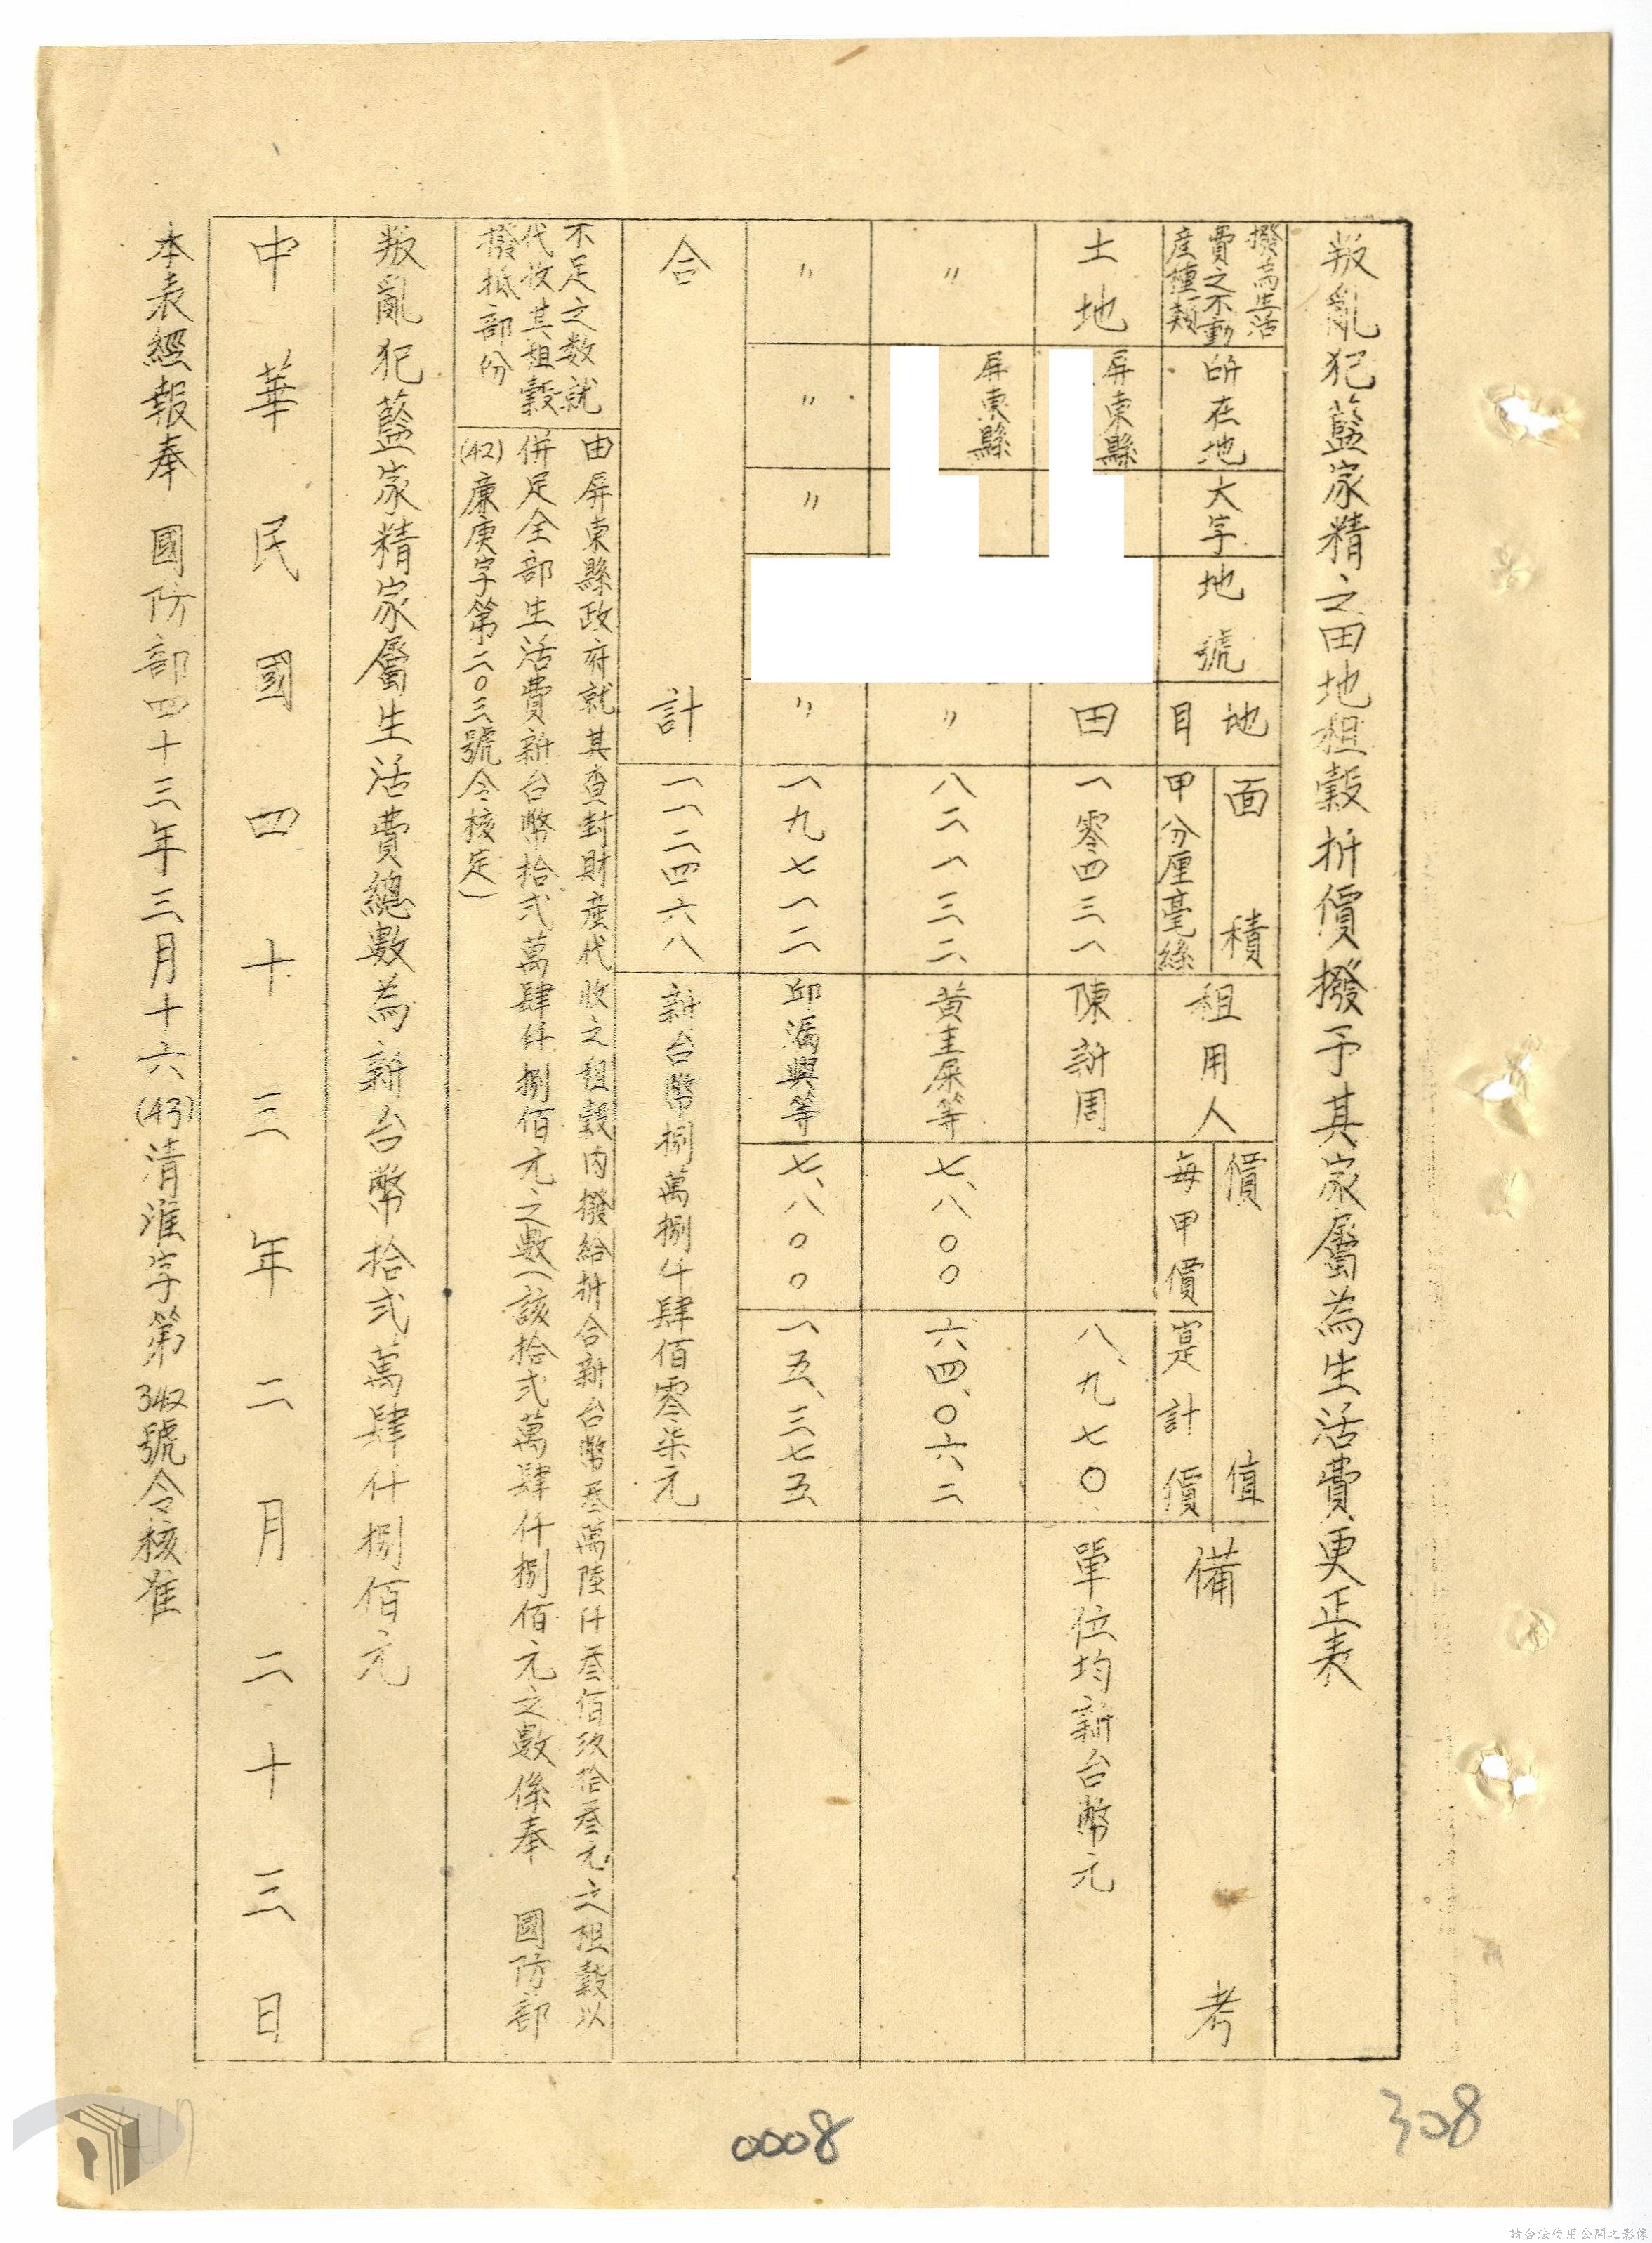 叛亂犯藍家精之田地租穀折價撥予其家屬為生活費更正表
撥為生活
費之不動
產種類
所在地
大字
地號
地目
面積
甲分厘毫絲
租用人
價值
每甲價
寔計價
備考
土地
屏東縣
田
一零四三一
陳新周
八、九七〇
單位均新台幣元
〃
屏東縣
〃
八二一三二
黃圭屎等
七、八〇〇
六四、〇六二
〃
〃
〃
〃
一九七一二
邱滿興等
七、八〇〇
一五、三七五
合計
一一二四六八
新台幣捌萬捌仟肆佰零柒元
不足之数就
代收其租穀
撥抵部份
由屏東縣政府就其查封財產代收之租穀內撥給折合新台幣叁萬陸仟叁佰玖拾叁元之租穀以
併足全部生活費新台幣拾弍萬肆仟捌佰元之數(該拾弍萬肆仟捌佰元之數係奉 國防部
(42)廉庚字第二〇三號令核定)
叛亂犯藍家精家屬生活費總數為新台幣拾弍萬肆仟捌佰元
中華民國四十三年二月二十三日
本表經報奉 國防部四十三年三月十六(43)清淮字第342號令核准
0008
308
請合法使用公開之影像